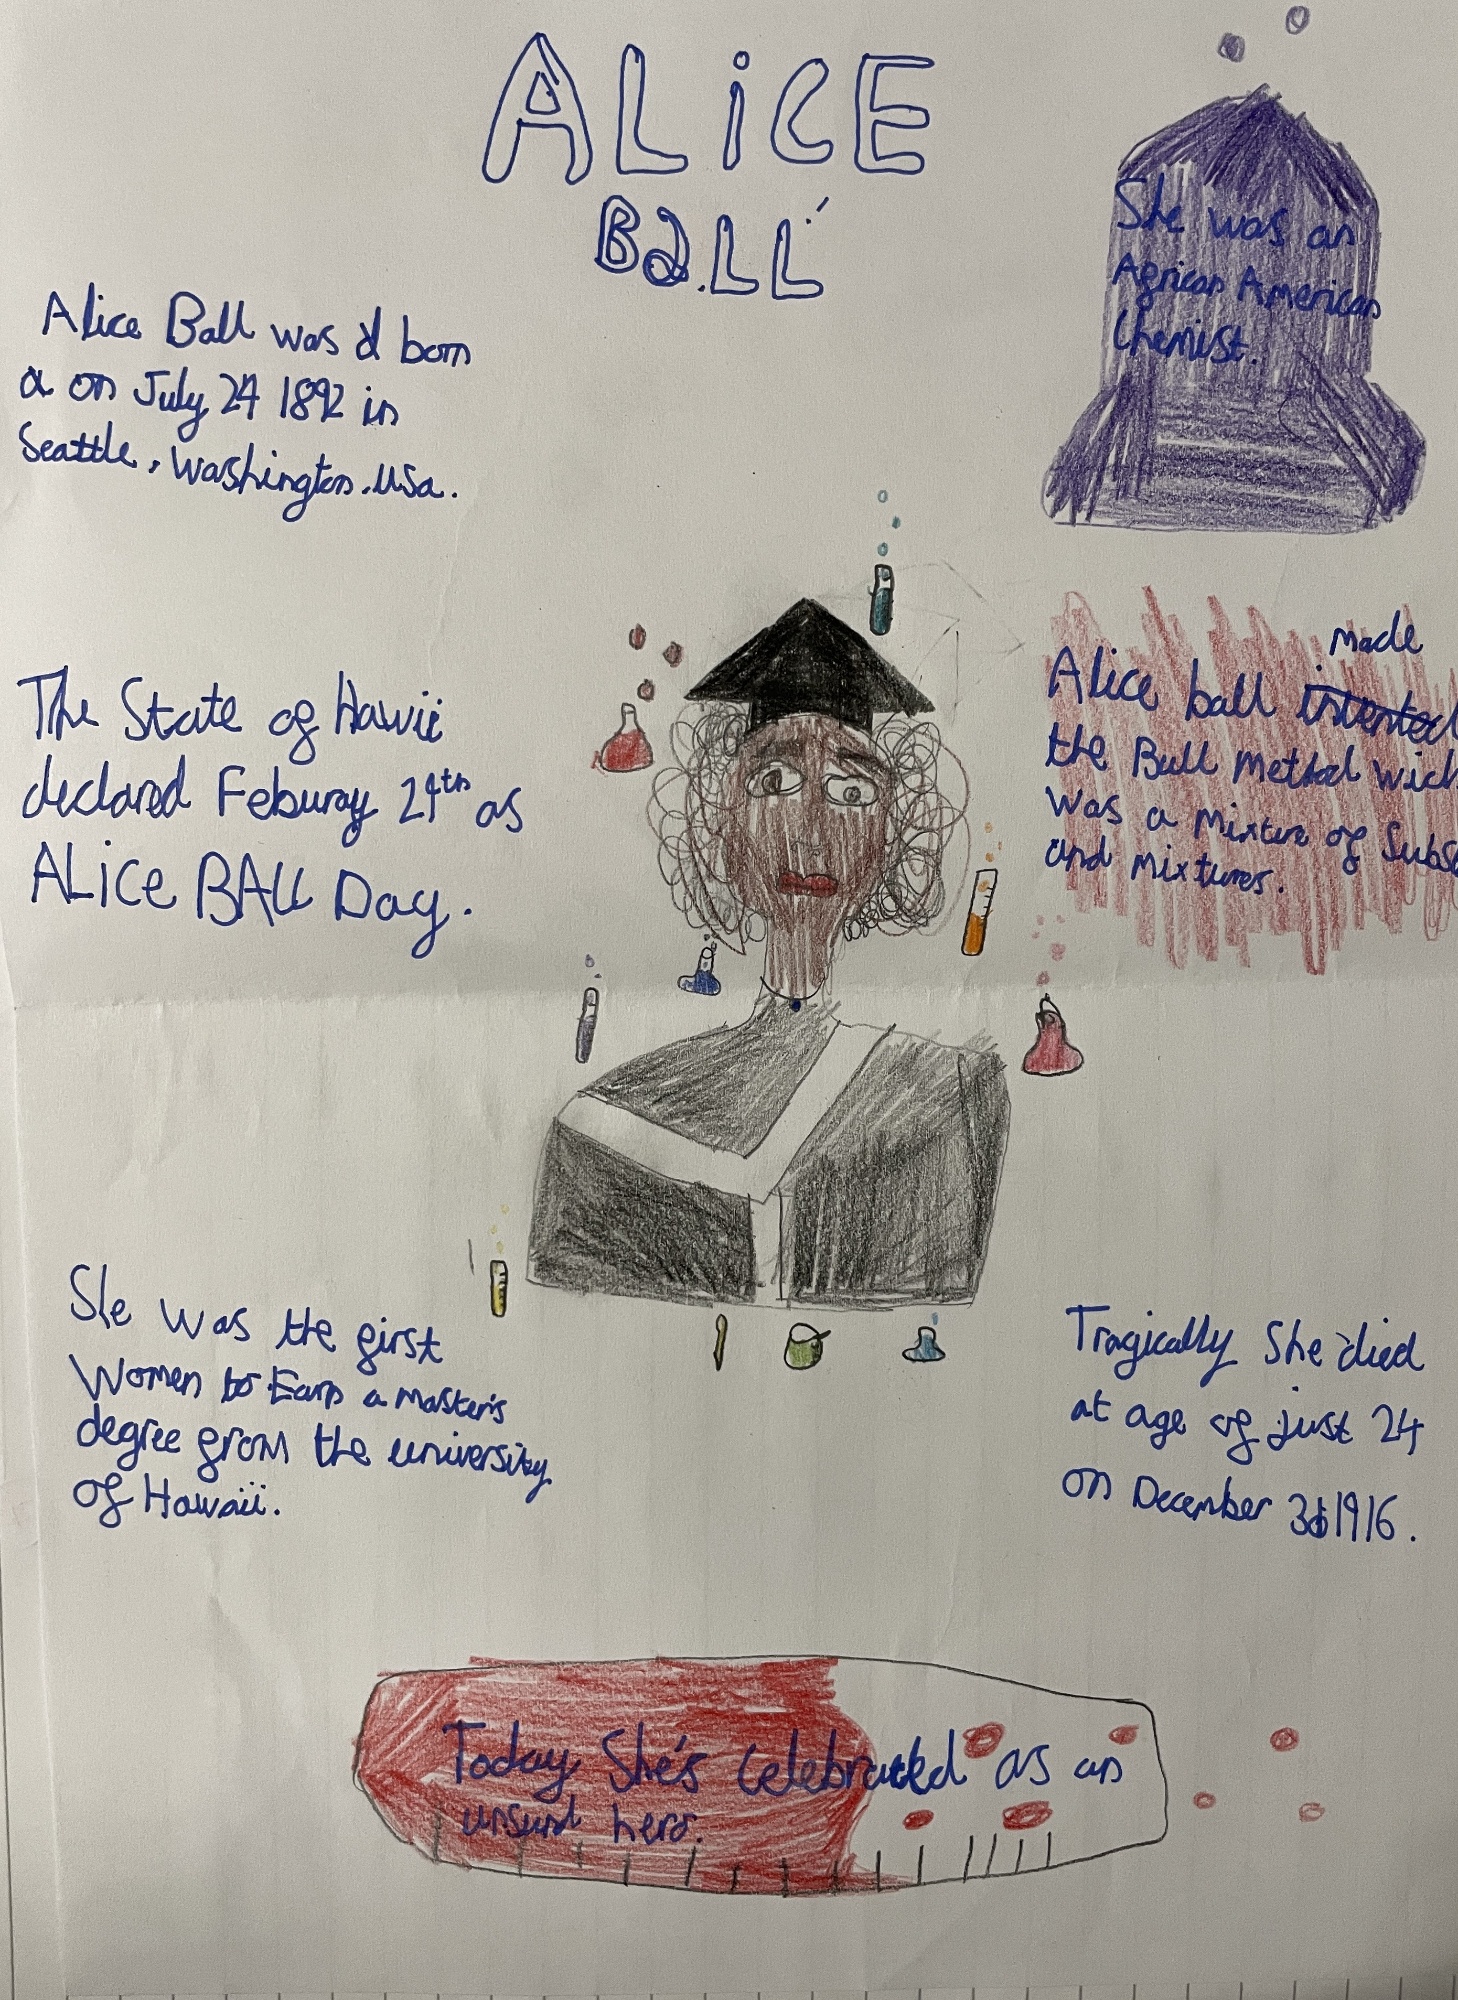 ALiCE
Ball
She was an
African American
Chemist.
Alice Ball was born
on July 24 1892 in
Seattle, Washington. USa.
made
Alice ball invented
the Ball Method wich
was a mixture of Subs
and mixtures.
The State of Hawii
declared Feburay 29th as
ALiCE BAll Day.
She was the first
Women to Earn a master's
degree from the university
of Hawaii.
Tragically She died
at age of just 24
on December 31 1916.
Today She's Celebrated as an
unsund hero.